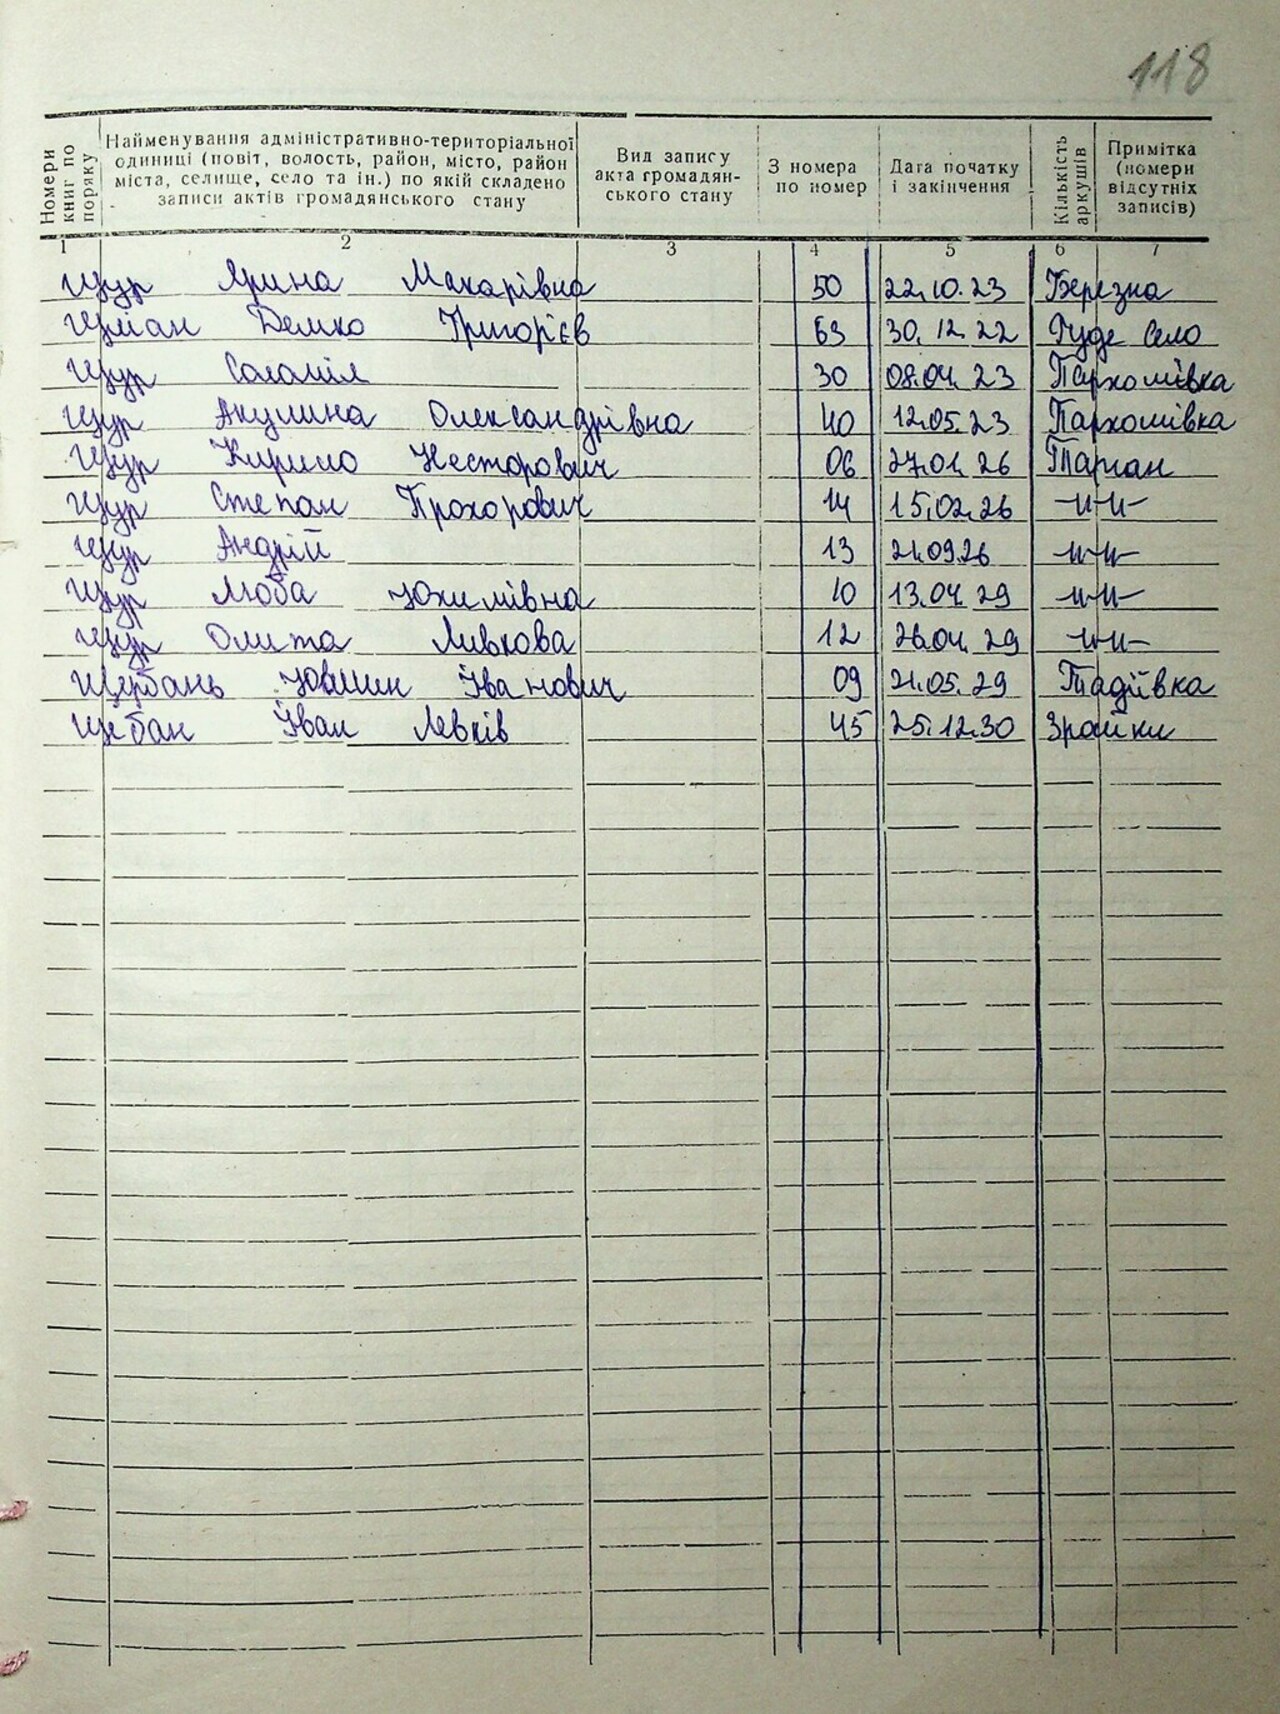 118
Номери книг по поряку
Найменування адміністративно-територіальної одиниці (повіт, волость, район, місто, район міста, селище, село та ін.) по якій складено записи актів громадянського стану
Вид запису акта громадян-ського стану
З номера по номер
Дата початку і закінчення
Кількість аркушів
Примітка (номери відсутніх записів)
1 2 3 4 5 6 7
Щур Ярина Макарівна 50 22.10.23 Березна
Демко Григорієв 63 30.12.22 Руде Село
Щур Соломія 30 08.04.23 Пархомівка
Щур Акулина Олександрівна 40 12.05.23 Пархомівка
Щур Кирило Несторович 06 27.01.26 Тарган
Щур Степан Прохорович 14 15.02.26 -"-"-
Щур Андрій 13 21.09.26 -"-"-
Щур Люба Юхимівна 10 13.04.29 -"-"-
Щур 12 26.04.29 -"-"-
Щербань Іванович 09 21.05.29 Тадіївка
Щебан Іван Левків 45 25.12.30 Зрайки